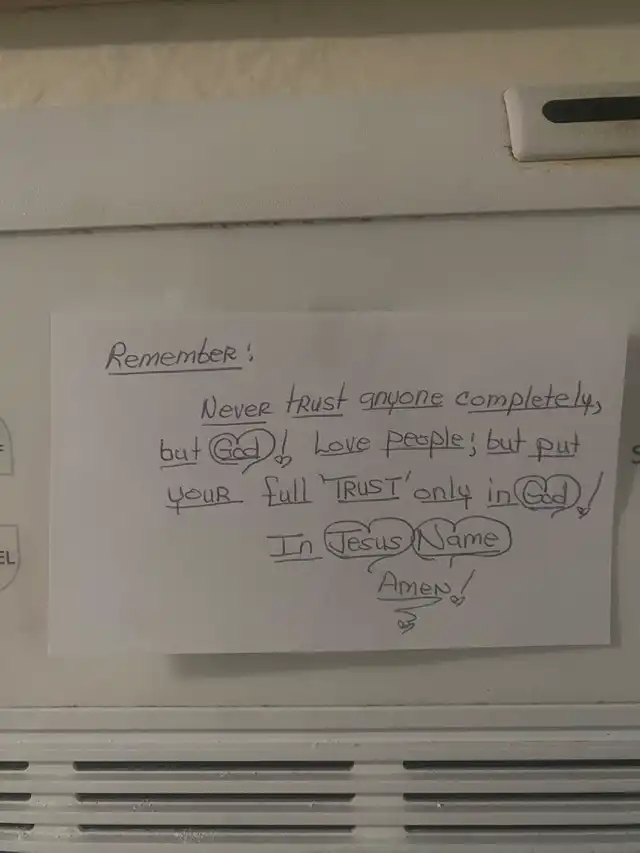 Remember:
Never trust anyone completely,
but God! Love people; but put
your full 'TRUST' only in God!
In Jesus Name
Amen!
EL